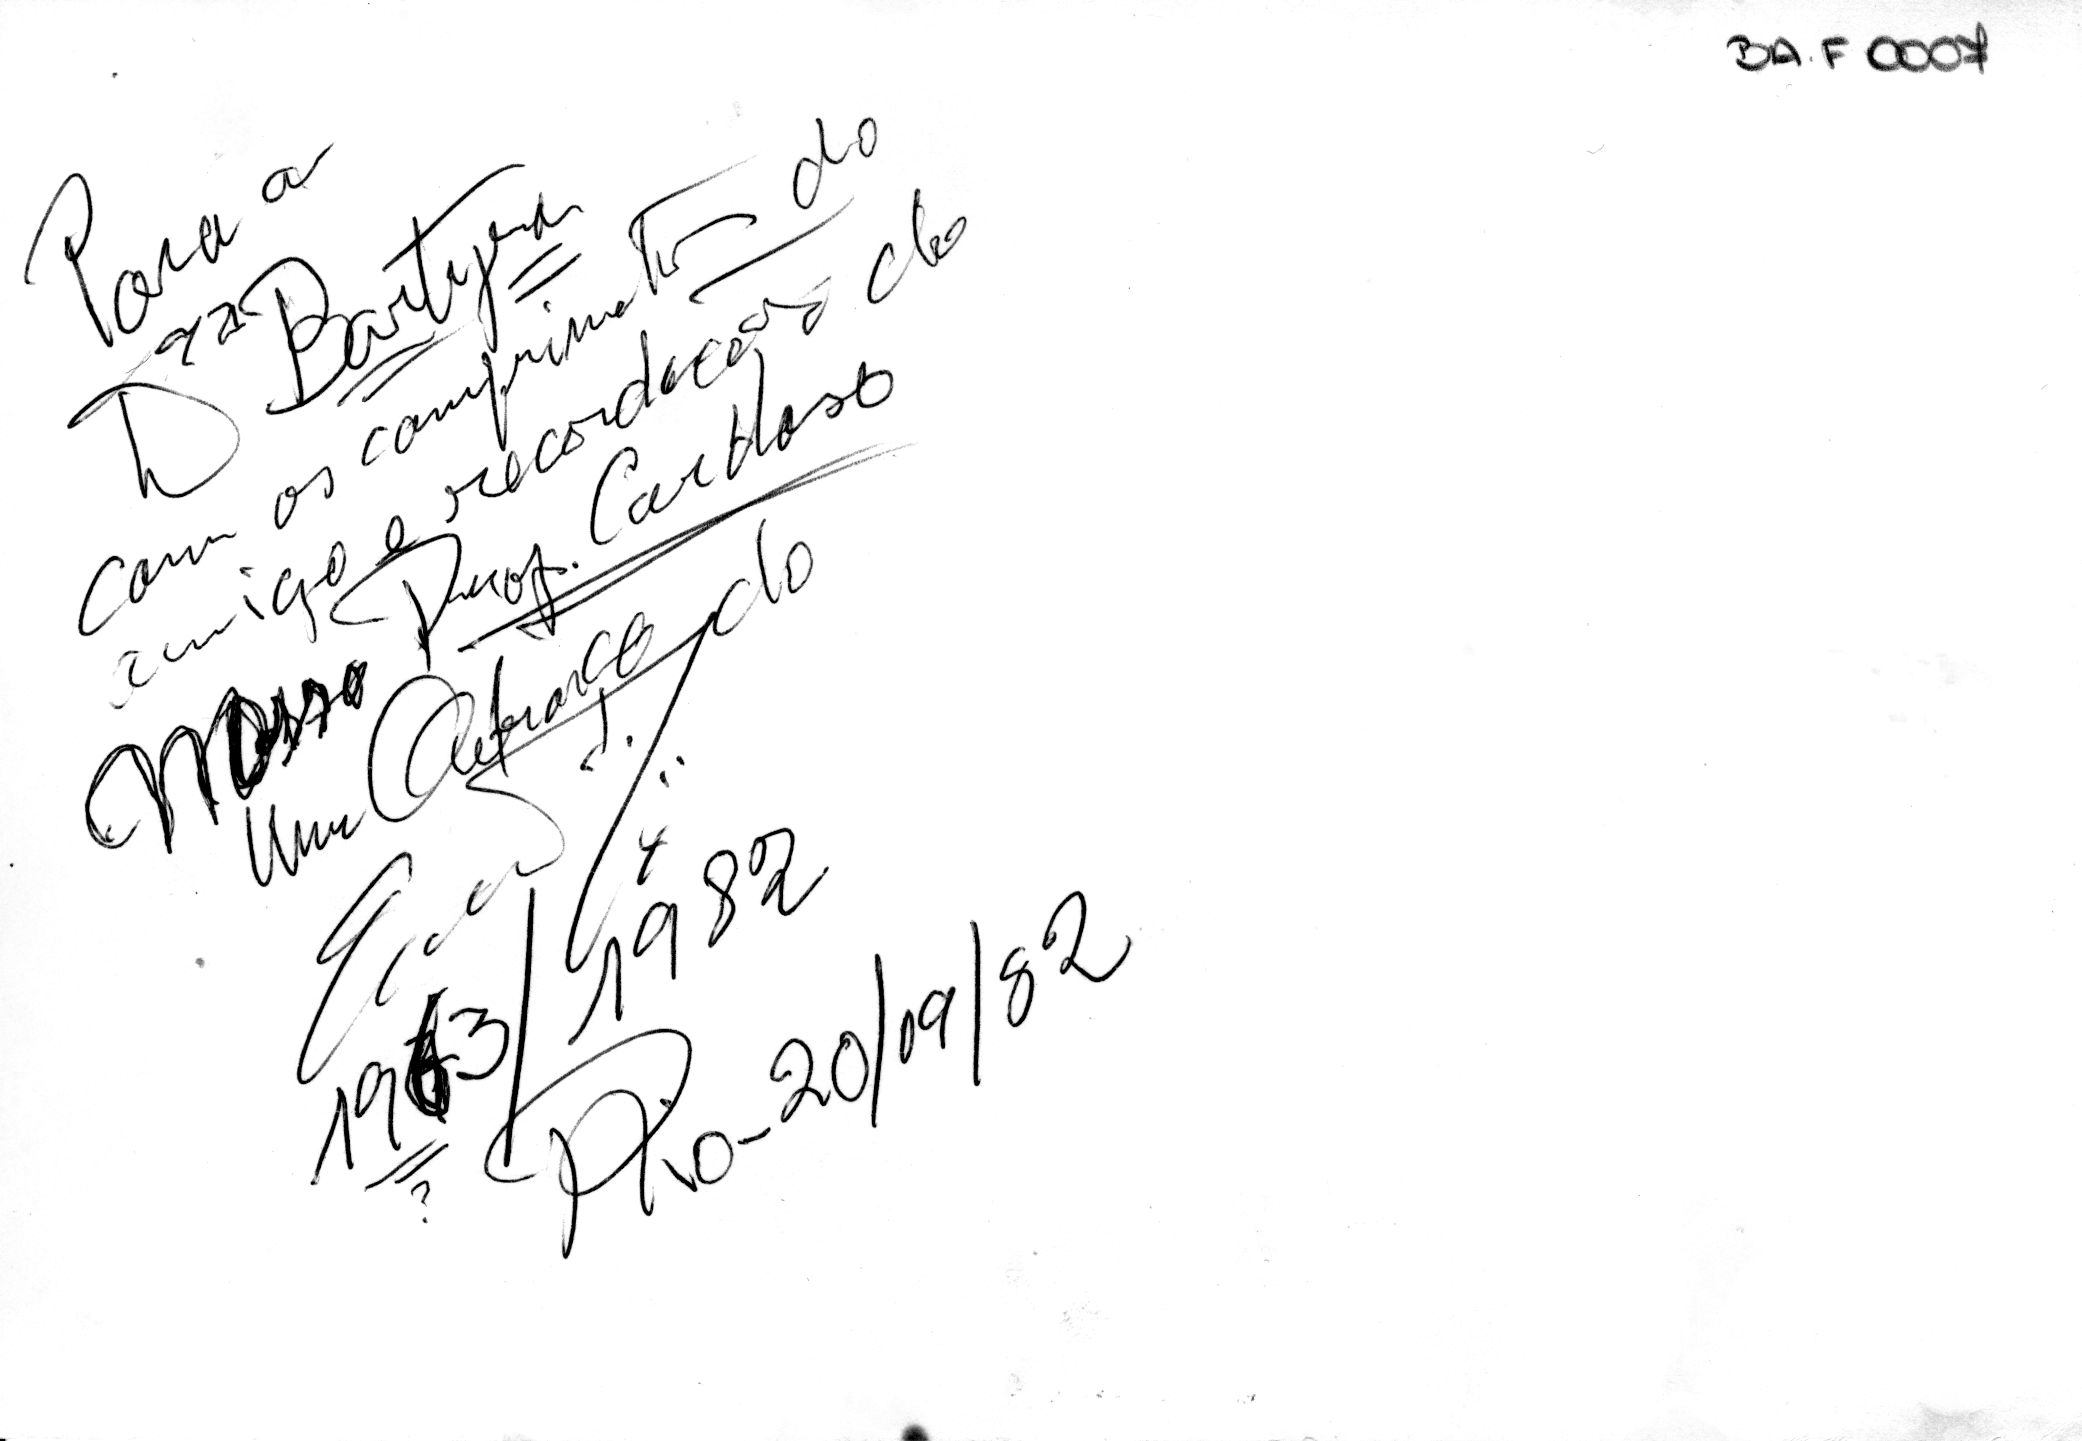 BA.F 0007
Para a
Dra Bartyra
com os comprimentos do
amigo e recordação do
Nosso Prof. Cardoso
Um abraço do
1963/1982
?
Rio-20/09/82